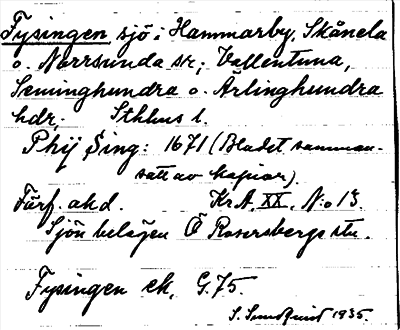 Fysingen sjö i Hammarby, Skånela
o. Norrsunda sr; Vallentuna,
Seminghundra o. Ärlinghundra
hdr. Sthlms l.
Phij Sing: 1671 (Bladet samman-
satt av kopior)
Förf. okd. Kr.A. XX. No 13.
Sjön belägen Ö Rosersbergs stn.
Fysingen ek. G.75.
S. Sundquist 1935.